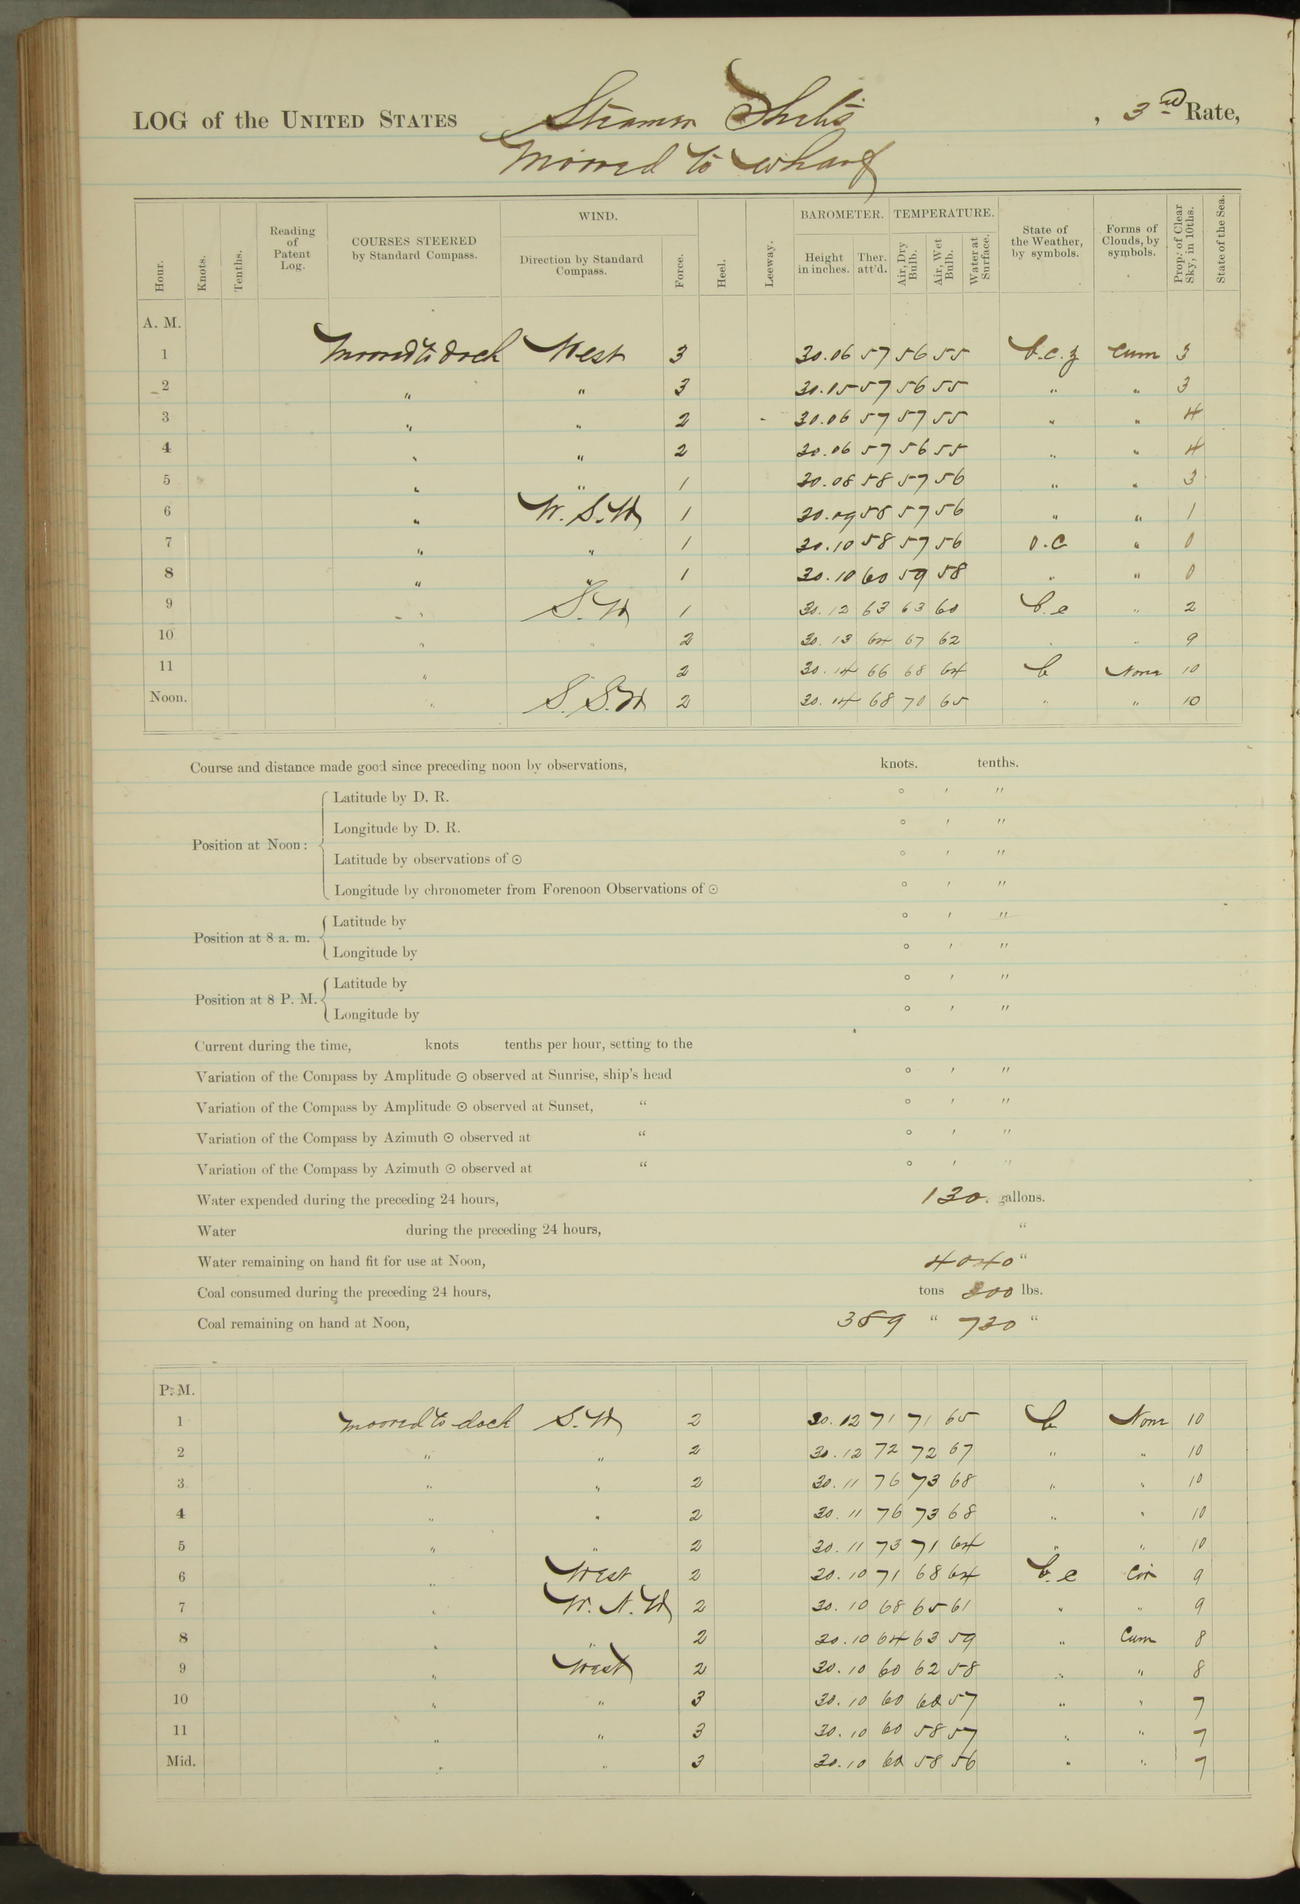 LOG of the UNITED STATES Steamer Thetis , 3rd Rate,
Moored to wharf
Hour. Knots. Tenths. Reading of Patent Log. COURSES STEERED by Standard Compass. WIND. Direction by Standard Compass. Force. Heel. Leeway. BAROMETER. Height in inches. Ther. att'd. TEMPERATURE. Air, Dry Bulb. Air, Wet Bulb. Water at Surface. State of the Weather, by symbols. Forms of Clouds, by symbols. Prop. of Clear Sky, in 10ths. State of the Sea.
A. M.
1 Moored to dock West 3 30.06 57 56 55 b.c.z Cum 3
2 " " 3 30.05 57 56 55 " " 3
3 " " 2 30.06 57 57 55 " " 4
4 " " 2 30.06 57 56 55 " " 4
5 " " 1 30.08 58 57 56 " " 3
6 " W.S.W 1 30.09 58 57 56 " " 1
7 " " 1 30.10 58 57 56 o.c " 0
8 " " 1 30.10 60 59 58 " " 0
9 " S.W 1 30.12 63 63 60 b.c " 2
10 " " 2 30.13 64 67 62 " " 9
11 " 2 30.14 66 68 64 b None 10
Noon. " S.S.W 2 30.14 68 70 65 " " 10
Course and distance made good since preceding noon by observations, knots. tenths.
Position at Noon:
Latitude by D. R. ° ′ ″
Longitude by D. R. ° ′ ″
Latitude by observations of ☉ ° ′ ″
Longitude by chronometer from Forenoon Observations of ☉ ° ′ ″
Position at 8 a. m.
Latitude by ° ′ ″
Longitude by ° ′ ″
Position at 8 P. M.
Latitude by ° ′ ″
Longitude by ° ′ ″
Current during the time, knots tenths per hour, setting to the
Variation of the Compass by Amplitude ☉ observed at Sunrise, ship's head ° ′ ″
Variation of the Compass by Amplitude ☉ observed at Sunset, " ° ′ ″
Variation of the Compass by Azimuth ☉ observed at " ° ′ ″
Variation of the Compass by Azimuth ☉ observed at " ° ′ ″
Water expended during the preceding 24 hours, 130. gallons.
Water during the preceding 24 hours, "
Water remaining on hand fit for use at Noon, 4040 "
Coal consumed during the preceding 24 hours, tons lbs.
Coal remaining on hand at Noon, 389 " 720 "
P. M.
1 moored to dock S.W 2 30.12 71 71 65 b None 10
2 " " 2 30.12 72 72 67 " " 10
3 " " 2 30.11 76 73 68 " " 10
4 " " 2 30.11 76 73 68 " " 10
5 " " 2 30.11 73 71 64 " " 10
6 " West 2 30.10 71 68 64 b.c Cir 9
7 " W.N.W 2 30.10 68 65 61 " " 9
8 " " 2 30.10 64 63 59 " Cum 8
9 " West 2 30.10 60 62 58 " " 8
10 " " 3 30.10 60 60 57 " " 7
11 " " 3 30.10 60 58 57 " " 7
Mid. " " 3 30.10 60 58 56 " " 7